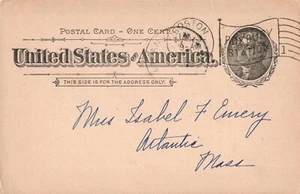 POSTAL CARD - ONE CENT
BOSTON
United States of America.
1
THIS SIDE IS FOR THE ADDRESS ONLY.
Miss Isabel F Emery
Atlantic
Mass